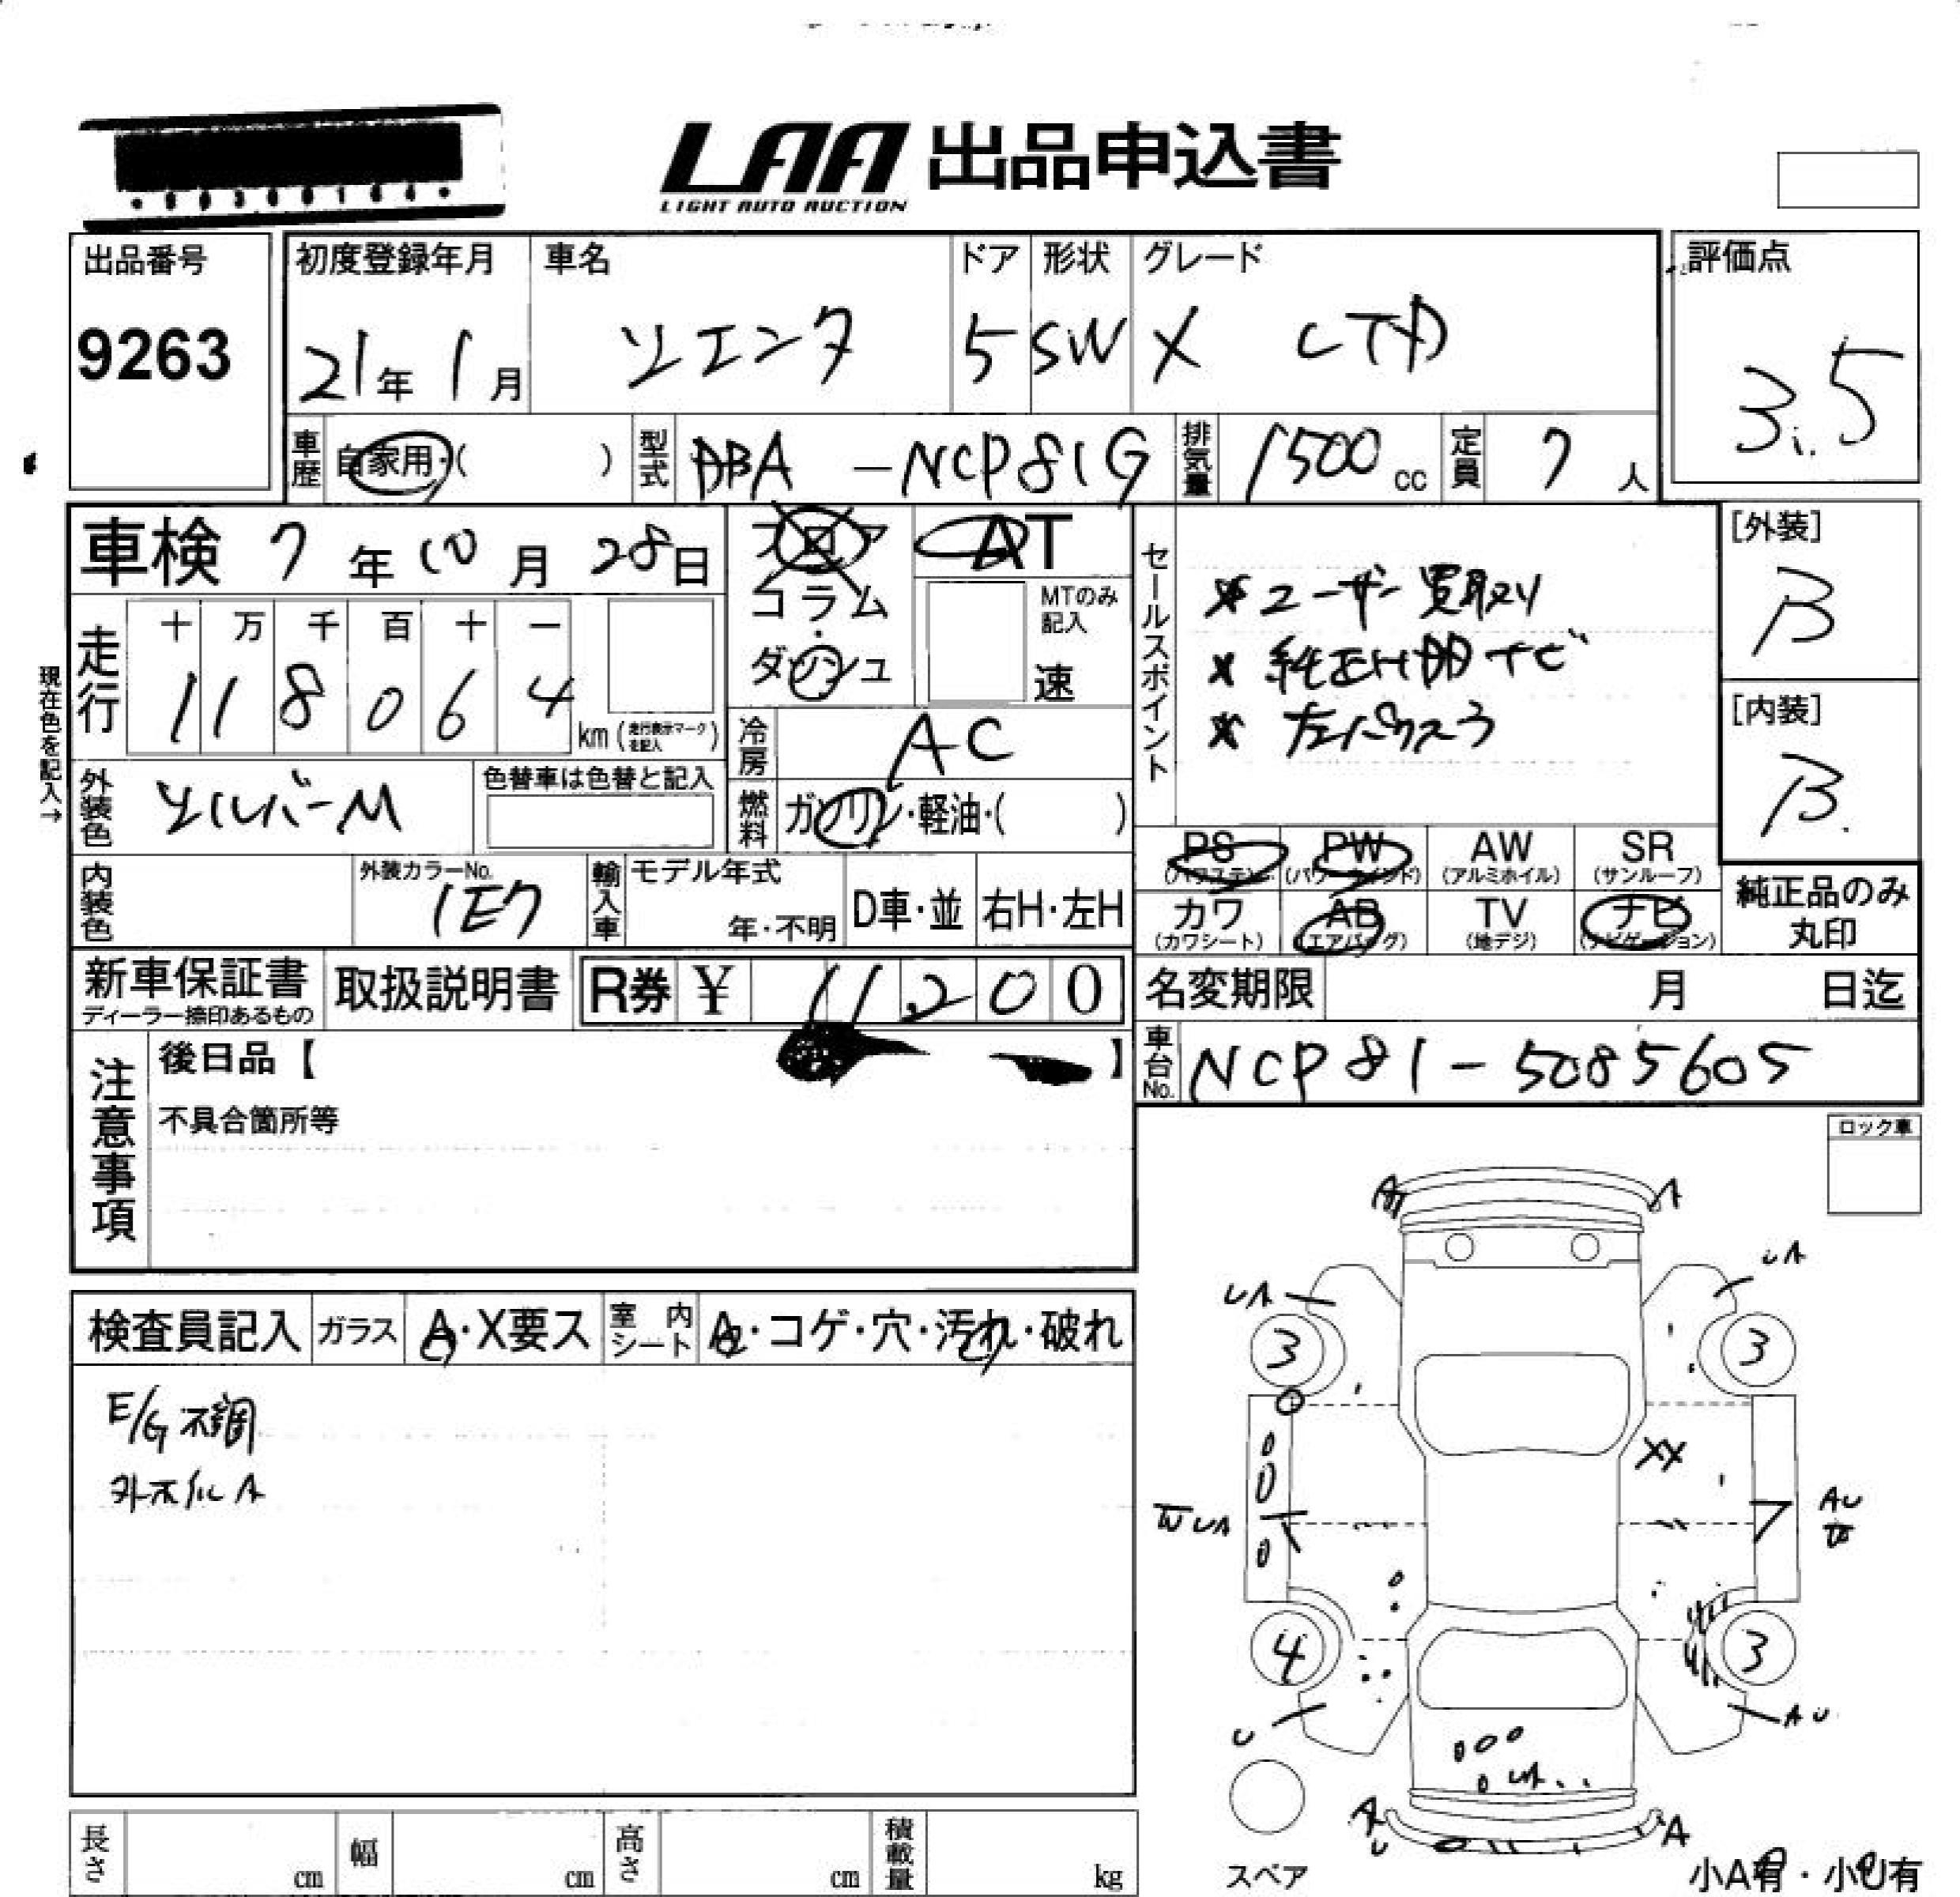 LAA 出品申込書
LIGHT AUTO AUCTION
出品番号
9263
初度登録年月
21年1月
車名
シエンタ
ドア
5
形状
SW
グレード
X LTD
評価点
3.5
車歴
自家用・( )
型式
DBA-NCP81G
排気量
1500cc
定員
7人
車検 7年10月28日
フロア
コラム
・
ダッシュ
AT
MTのみ
記入
速
現在色を記入→
走行
十 万 千 百 十 一
118064
km (走行表示マークを記入)
冷房
AC
外装色
シルバーM
色替車は色替と記入
燃料
ガソリン・軽油・( )
内装色
外装カラーNo.
1E7
輸入車
モデル年式
年・不明
D車・並
右H・左H
セールスポイント
*ユーザー買取り
*純正HDDナビ
*左パワスラ
[外装]
B
[内装]
B.
PS
(パワステ)
PW
(パワーウィンド)
AW
(アルミホイル)
SR
(サンルーフ)
カワ
(カワシート)
AB
(エアバッグ)
TV
(地デジ)
ナビ
(ナビゲーション)
純正品のみ
丸印
新車保証書
ディーラー捺印あるもの
取扱説明書
R券 ¥ 11,200
名変期限 月 日迄
車台No.
NCP81-5085605
注意事項
後日品【 】
不具合箇所等
ロック車
検査員記入
ガラス
A・X要ス
室内シート
A・コゲ・穴・汚れ・破れ
E/G不調
外ホイルA
A A
UA UA
3 3
XX
UA AU
4 3
U AU
UA
A
U A
スペア
小A有・小U有
長さ cm
幅 cm
高さ cm
積載量 kg